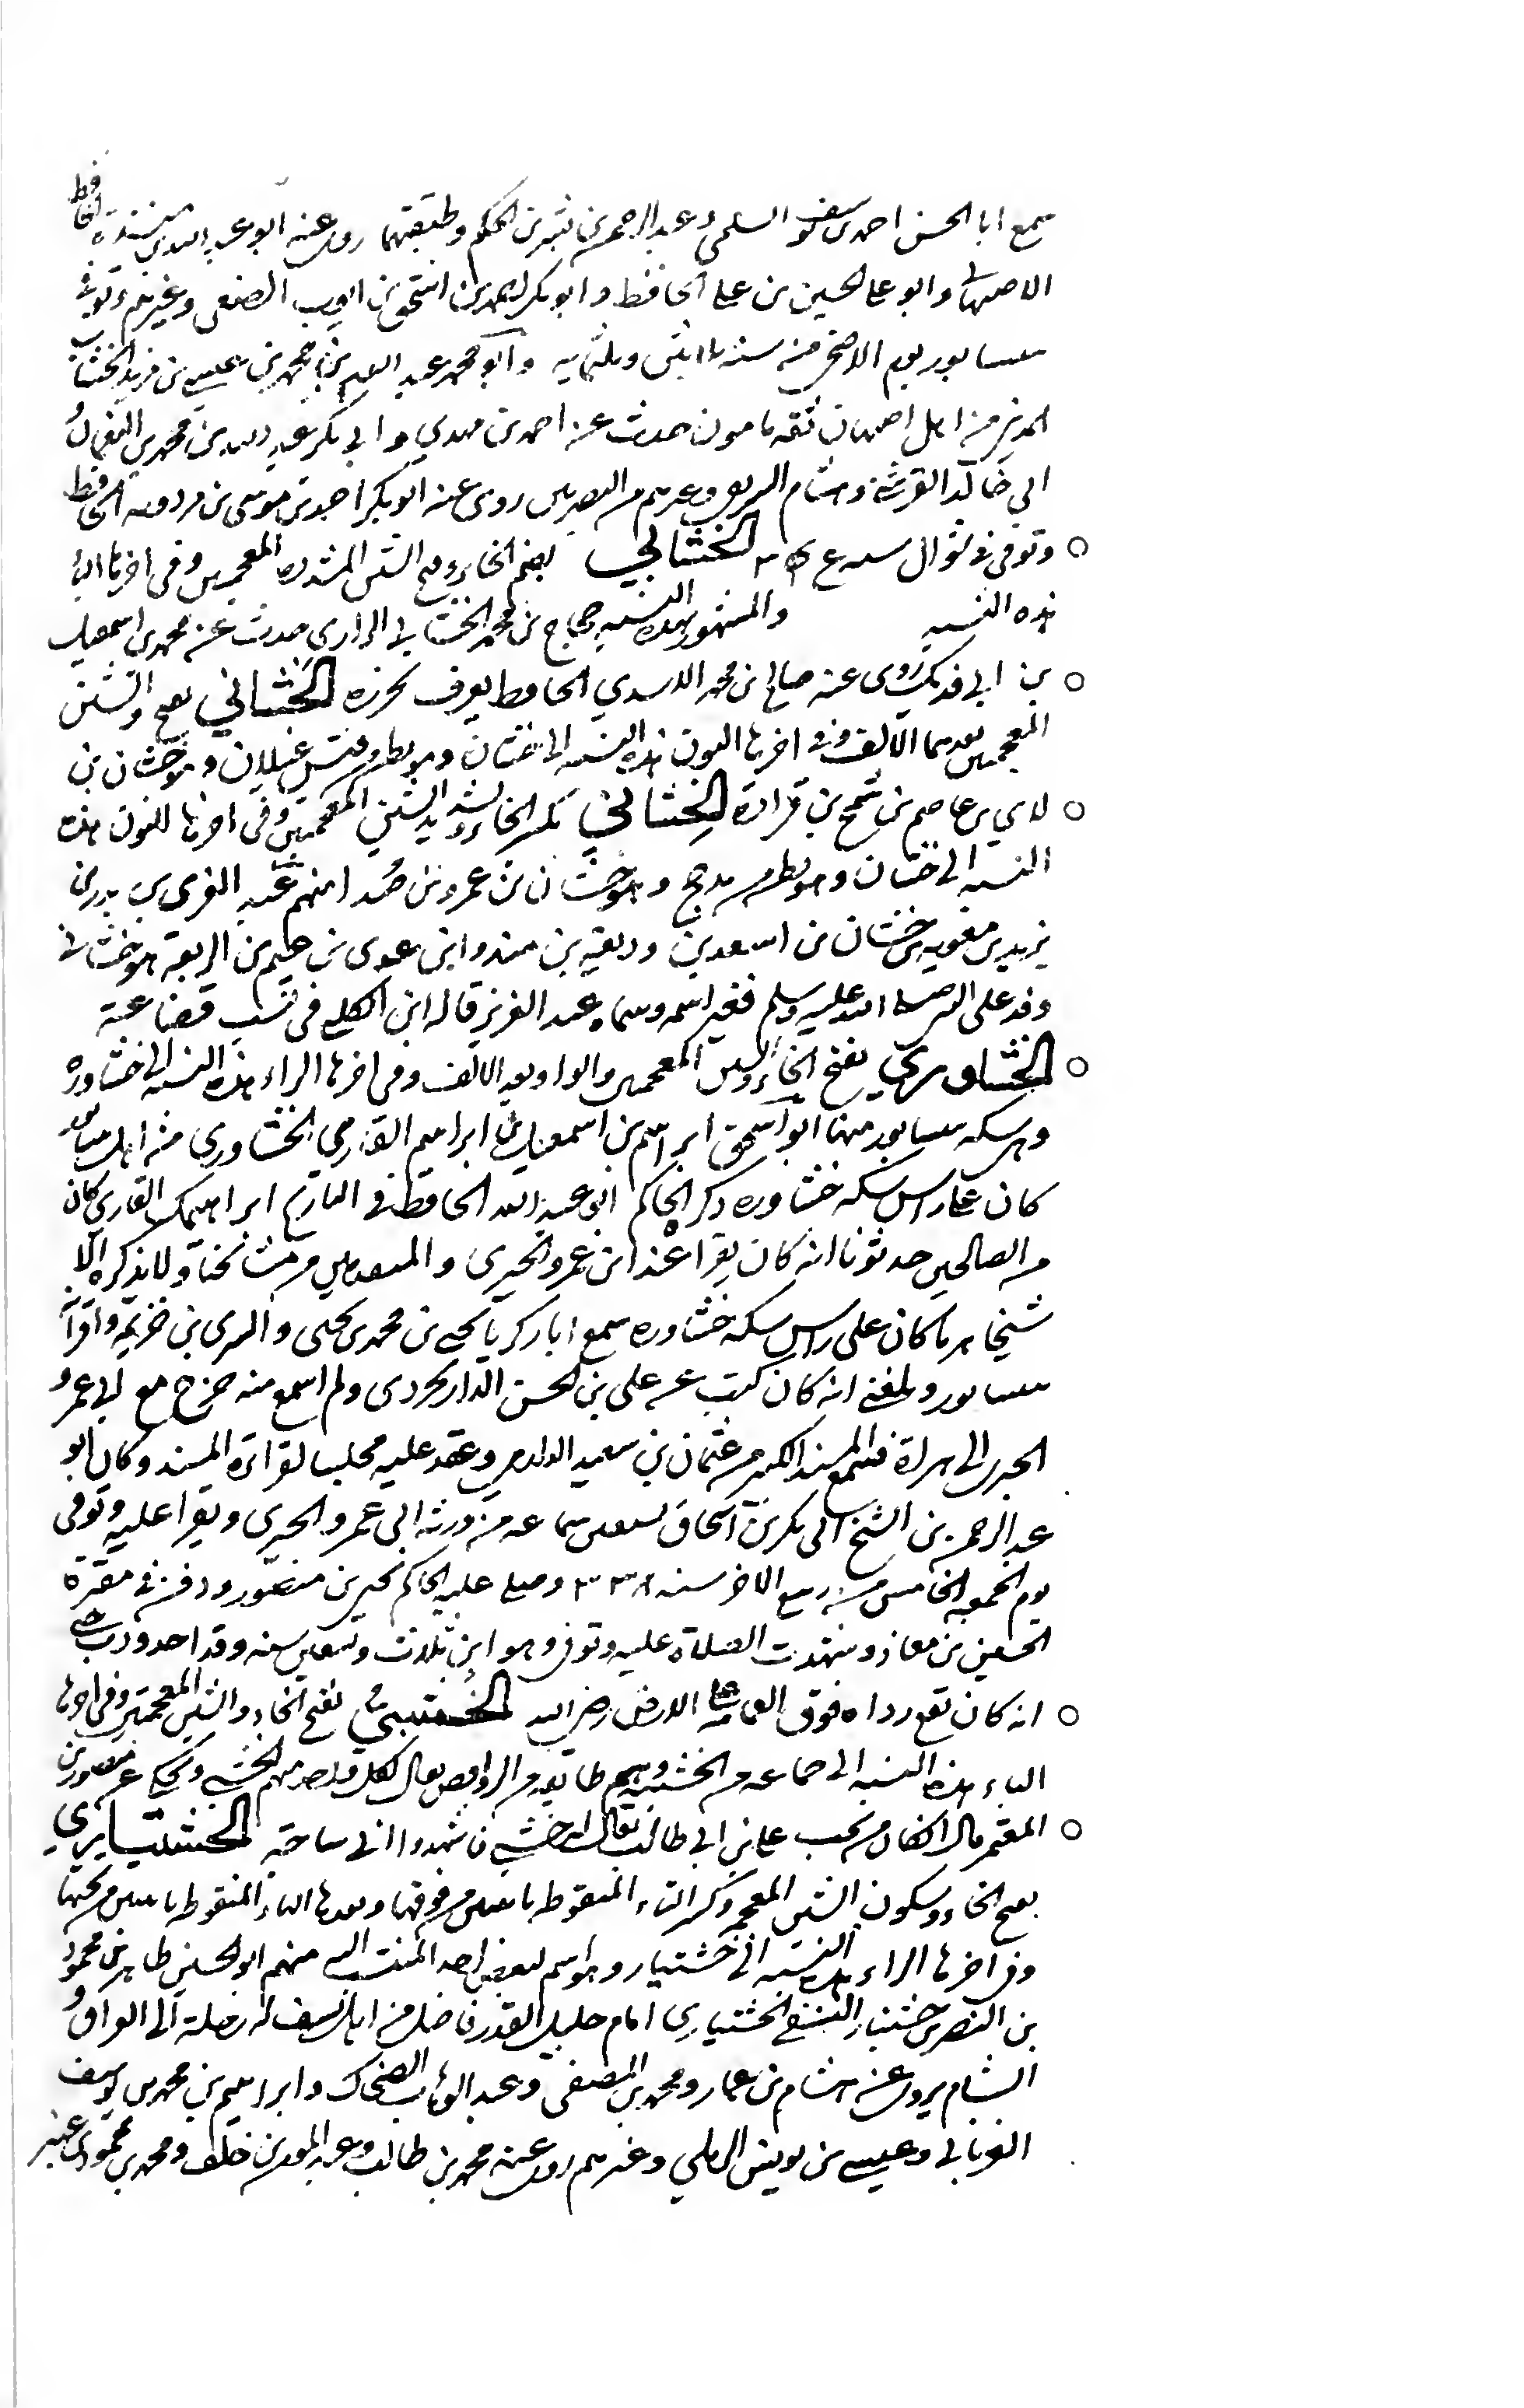 سمع ابا الحسن احمد بن يوسف السلمي و عبد الرحمن بن بشر بن الحكم وطبقتهما روى عنه ابو عبد الله بن مندة الحافظ
الاصبهاني وابو علي الحسين بن علي الحافظ وابو بكر احمد بن اسحق بن ايوب الصبغي وغيرهم وتوفي
بنيسابور يوم الاضحى من سنة وثلثمايه وابو محمد عبد الله بن محمد بن عيسى بن مزيد الخشاب
المديني من اهل اصبهان ثقه مامون حدث عن احمد بن مهدي و ابي بكر عبد الله بن محمد بن النعمان
ابي خالد القرشي وهشام السيرافي وغيرهم من البصريين روى عنه ابو بكر احمد بن موسى بن مردويه الحافظ
وتوفي في شوال سنه الخشابي بضم الخاء وفتح الشين المشدده المعجمتين وفي اخرها الباء
هذه النسبه والمشهور بهذه النسبه حجاج بن محمد الخشابي الرازي حدث عن محمد بن اسمعيل
بن ابي فديك روى عنه صالح بن محمد الاسدي الحافظ يعرف بجزره الخشاني بفتح والشين
المعجمتين بعدهما الالف وفي اخرها النون هذه النسبه الى خشان وهو بطن من قيس عيلان وهو خشان بن
لاي بن عاصم بن شمخ بن فزارة الخشاني بكسر الخاء وتشديد الشين المعجمتين وفي اخرها النون هذه
النسبه الى خشان وهو بطن من مذحج وهو خشان بن عمرو بن صُدا منهم عبد العزى بن بدر بن
يزيد بن معويه بن خشان بن اسعد بن وديعة بن مبذول بن عدي بن عثم بن الربعه هو خشاني
وفد على النبي صلى الله عليه وسلم فغير اسمه وسماه عبد العزيز قاله ابن الكلبي في نسب قضاعة
الخشاوري بفتح الخاء والشين المعجمتين والواو بعد الالف وفي اخرها الراء هذه النسبه الى خشاوره
وهي سكه بنيسابور منها ابو اسحق ابراهيم بن اسمعيل بن ابراهيم القاري الخشاوري من اهل نيسابور
كان على راس سكه خشاوره ذكر الحاكم ابو عبد الله الحافظ في التاريخ ابراهيمك القاري كان
من الصالحين حدثونا انه كان يقرا عند ابي عمرو الحيري والمتقدمين من مشائخنا ولا يذكره الا
شيخا هرما كان على راس سكه خشاوره سمع ابا زكريا يحيى بن محمد بن يحيى والسري بن خزيمه واقرانه
بنيسابور وبلغني انه كان كتب عن علي بن الحسن الدارابجردي ولم اسمع منه خرج مع ابي عمرو
الحيري الى هراة فسمع المسند الكبير من عثمان بن سعيد الدارمي وعقد عليه مجلسا لقراءة المسند وكان ابو
عبد الرحمن بن الشيخ ابي بكر بن اسحاق يستعير سماعه من ورثه ابي عمرو الحيري ويقرا عليه وتوفي
يوم الجمعه الخامس من ربيع الاخر سنه ٣٣٨ وصلى عليه الحاكم يحيى بن منصور ودفن في مقبرة
الحسين بن معاذ وشهدت الصلاة عليه وتوفي وهو ابن ثلاث وتسعين سنه وقد احدودب حتى
انه كان يقع رداه فوق العمامة على الارض رضي الله الخشبي بفتح الخاء والشين المعجمتين وفي اخرها
الباء هذه النسبه الى جماعه من الخشبيه وهم طايفه من الروافض يقال لكل واحد منهم الخشبي ويحكى عن منصور بن
المعتمر قال ان كان من يحب علي بن ابي طالب يقال له خشبي فاشهدوا اني ساحبه الخشتياري
بفتح الخاء وسكون الشين المعجمه وكسر التاء المنقوطه باثنين من فوقها وبعدها الياء المنقوطه باثنين من تحتها
وفي اخرها الراء هذه النسبه الى خشتيار وهو اسم لبعض اجداد المنتسب اليه منهم ابو الحسين طاهر بن محمود
بن النضر بن خشتيار النسفي الخشتياري امام جليل القدر فاضل من اهل نسف له رحلة الى العراق و
الشام يروي عن هشام بن عمار ومحمد بن المصفى وعبد الوهاب بن الضحاك وابراهيم بن محمد بن يوسف
الفريابي وعيسى بن يونس الرملي وغيرهم روى عنه محمد بن طالب وعبد المومن بن خلف ومحمد بن محمود بن عنبر